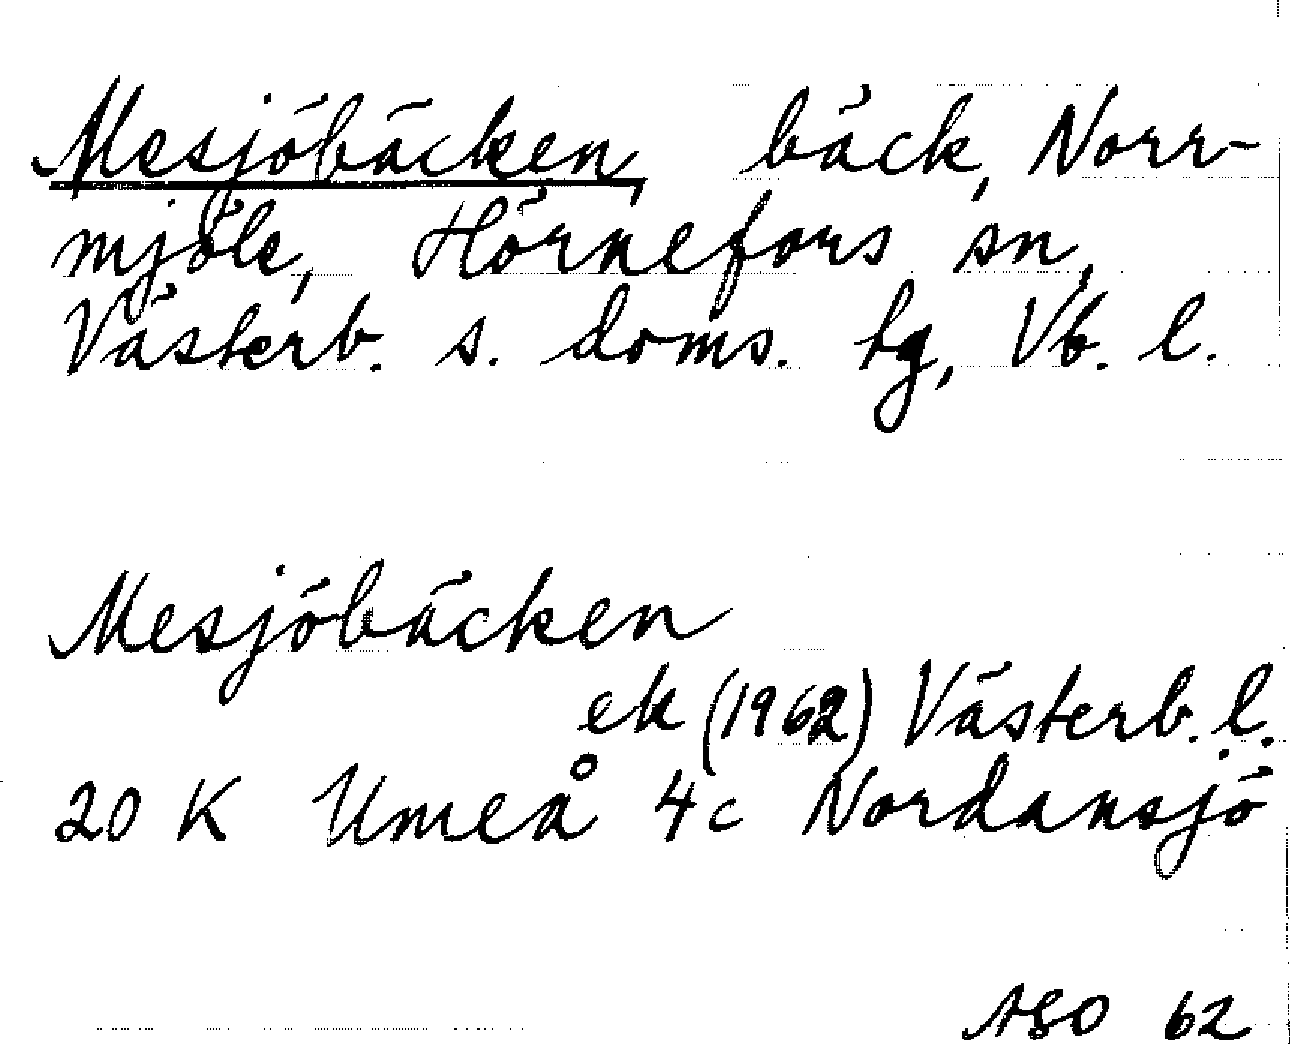 Mesjöbäcken, bäck, Norr-
mjöle, Hörnefors sn,
Västerb. s. doms. tg, Vb. l.
Mesjöbäcken
ek (1962) Västerb. l.
20 K Umeå 4c Nordansjö
ASO 62